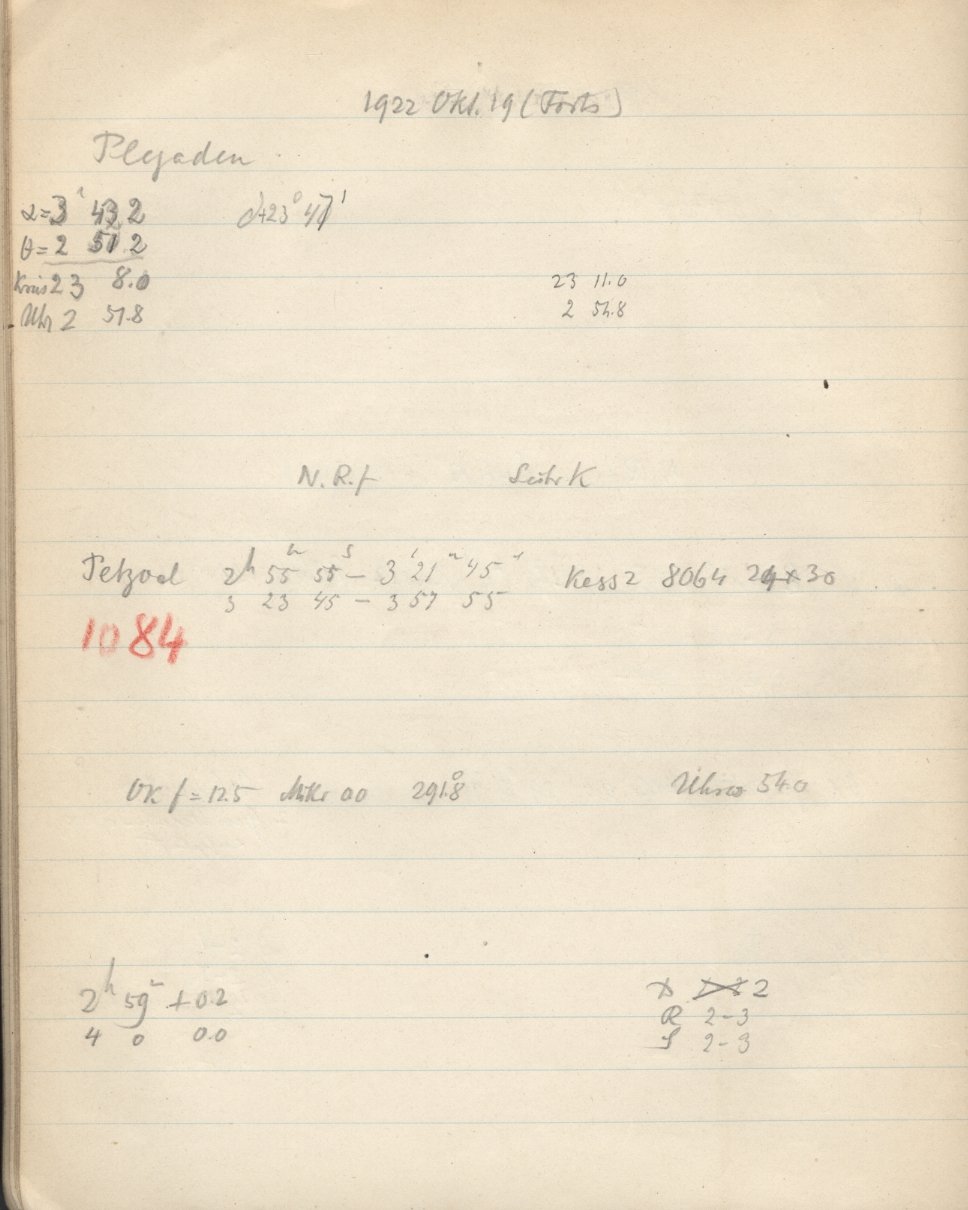 1922 Okt. 19 (Forts)
Plejaden
α=3ʰ 43 2 δ+23° 47'
θ=2 51.2
Kreis 23 8.0 23 11.0
Uhr 2 51.8 2 54.8
N.R.f K
Petzval 2ʰ 55ᵐ 55ˢ – 3ʰ 21ᵐ 45ˢ 8064 24x30
3 23 45 – 3 57 55
1084
OK f=12.5 Mikr 00 291.8° 54.0
2ʰ 59ᵐ +0.2 2
4 0 0.0 R 2-3
S 2-3